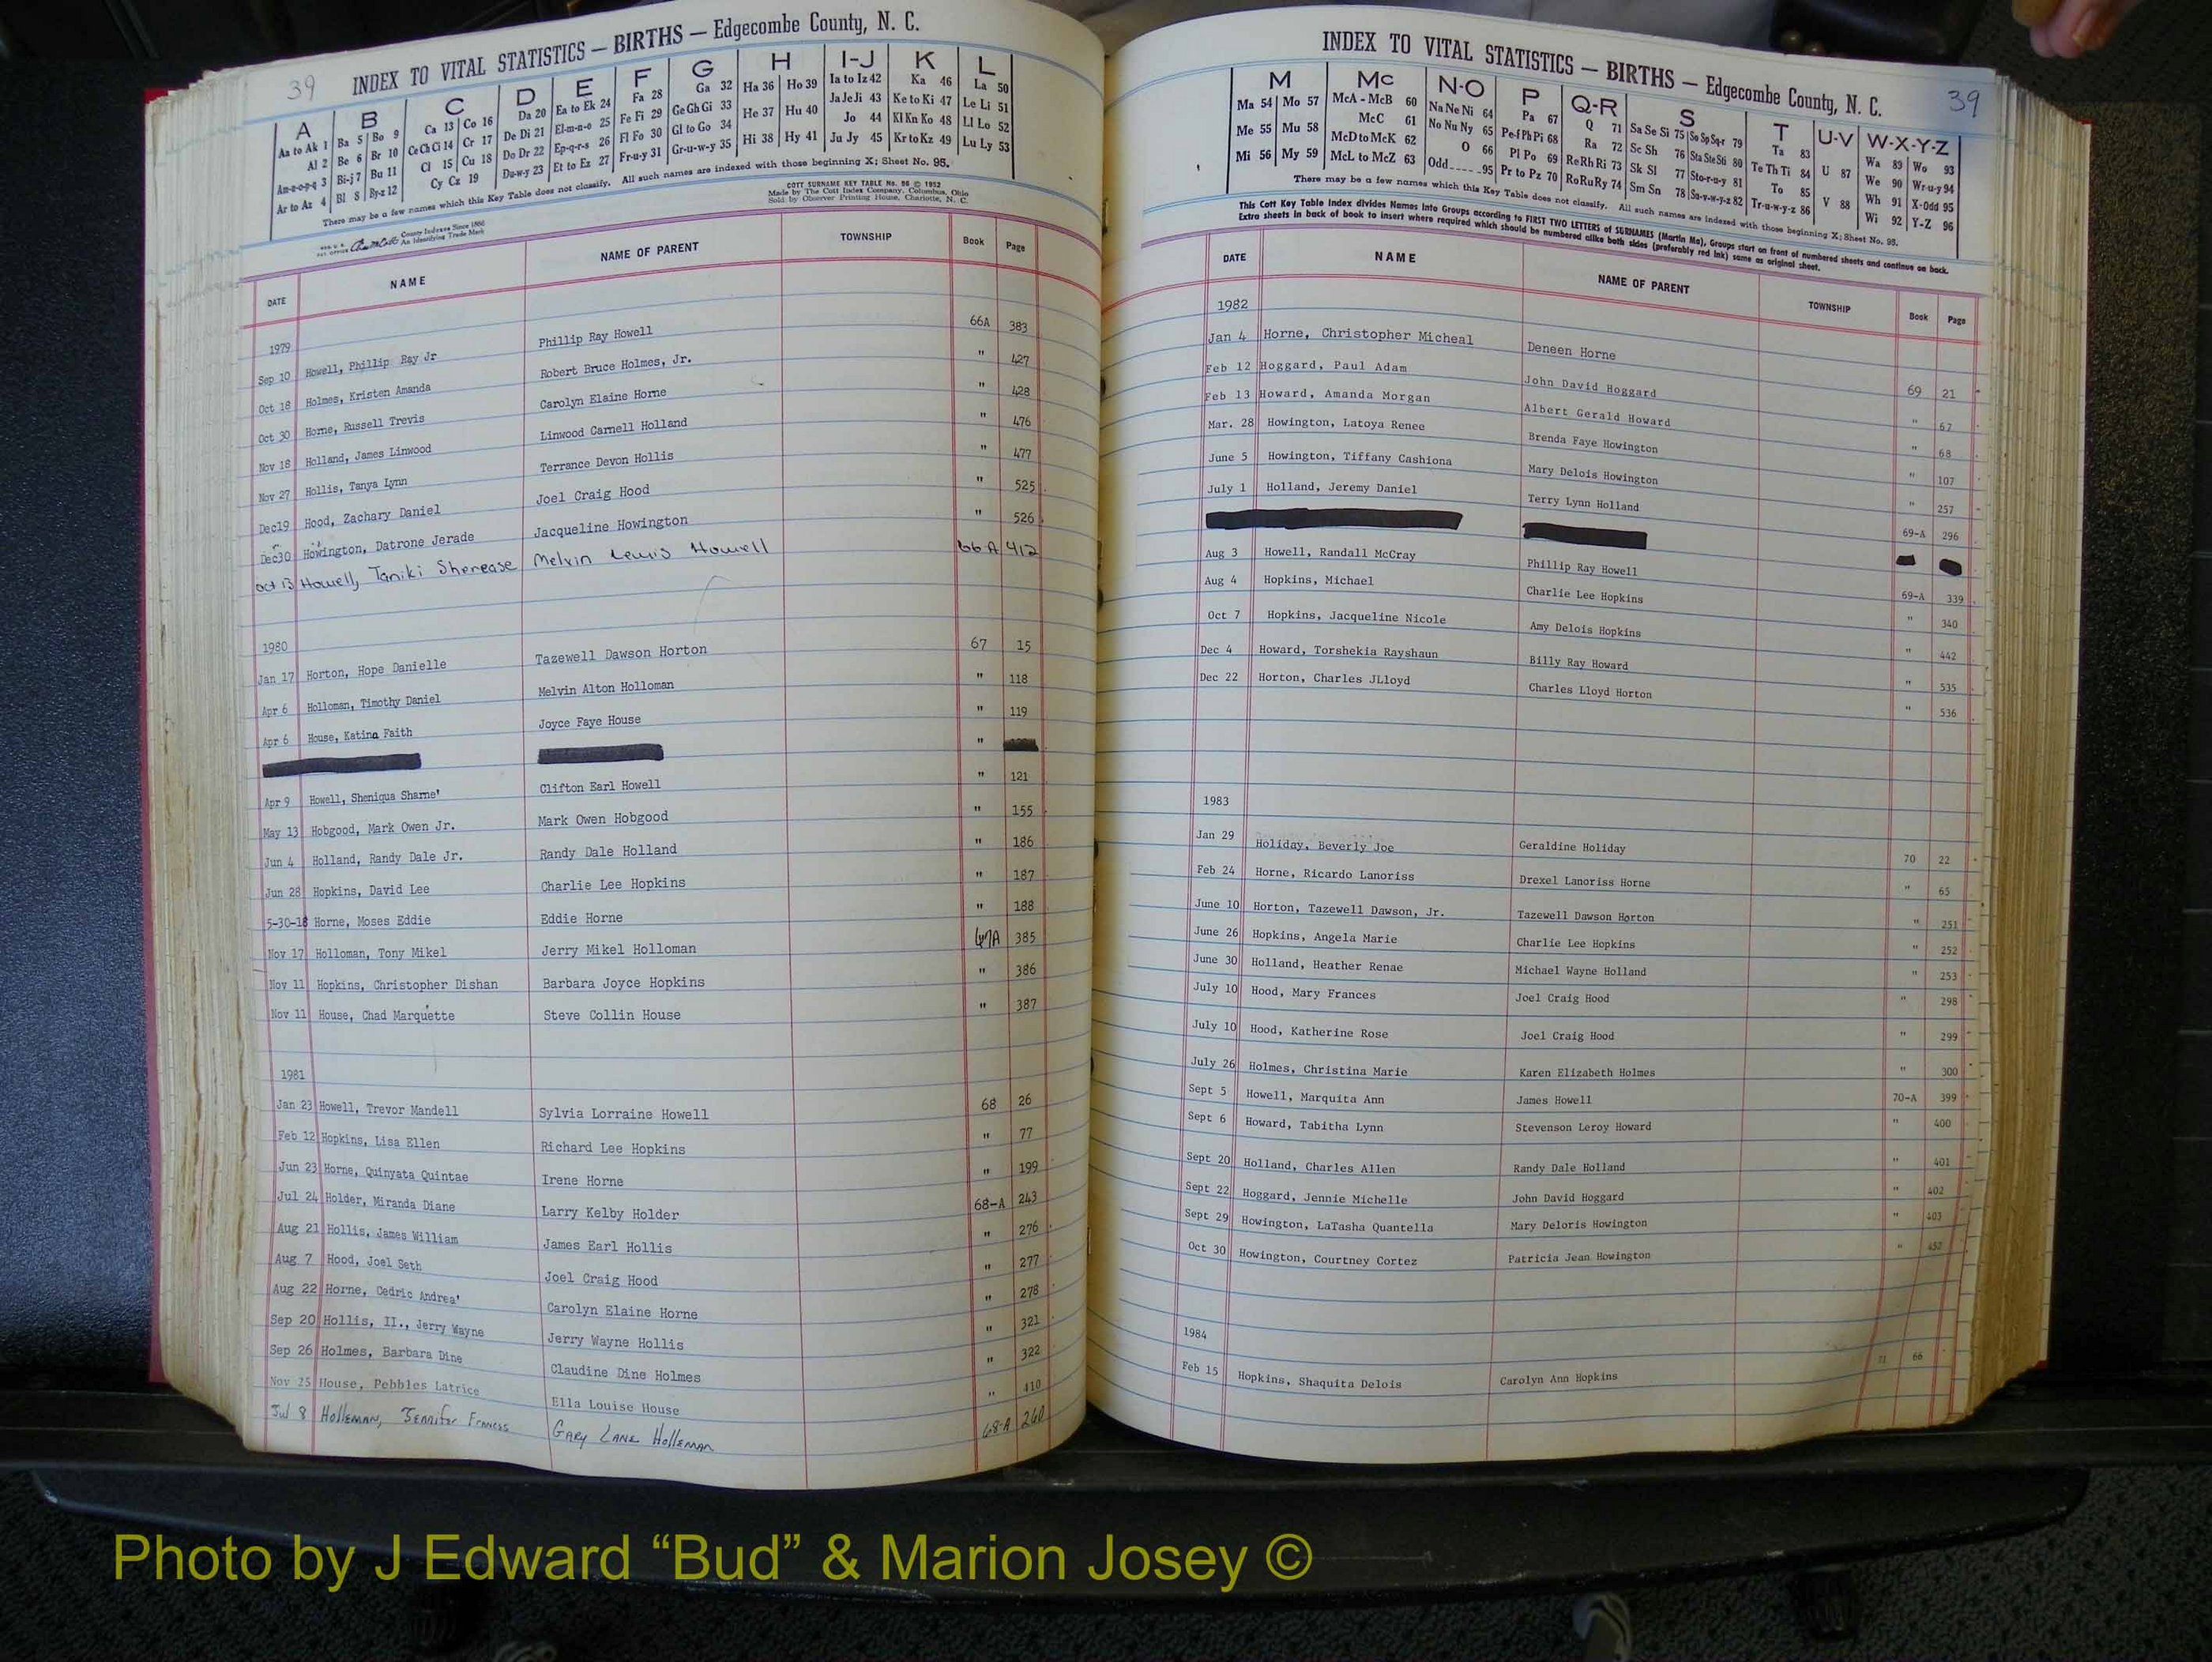 39 INDEX TO VITAL STATISTICS — BIRTHS — Edgecombe County, N. C.
A B C D E F G H I-J K L
Aa to Ak 1 Ba 5 Bo 9 Ca 13 Co 16 Da 20 Ea to Ek 24 Fa 28 Ga 32 Ha 36 Ho 39 Ia to Iz 42 Ka 46 La 50
Al 2 Be 6 Br 10 Ce Ch Ci 14 Cr 17 De Di 21 El-m-n-o 25 Fe Fi 29 Ge Gh Gi 33 He 37 Hu 40 Ja Je Ji 43 Ke to Ki 47 Le Li 51
Am-n-o-p-q 3 Bi-j 7 Bu 11 Cl 15 Cu 18 Do Dr 22 Ep-q-r-s 26 Fl Fo 30 Gl to Go 34 Hi 38 Hy 41 Jo 44 Kl Kn Ko 48 Ll Lo 52
Ar to Az 4 Bl 8 By-z 12 Cy Cz 19 Du-w-y 23 Et to Ez 27 Fr-u-y 31 Gr-u-w-y 35 Ju Jy 45 Kr to Kz 49 Lu Ly 53
There may be a few names which this Key Table does not classify. All such names are indexed with those beginning X; Sheet No. 95.
COTT SURNAME KEY TABLE No. 96 © 1952
Made by The Cott Index Company, Columbus, Ohio
Sold by Observer Printing House, Charlotte, N. C.
County Indexes Since 1888
An Identifying Trade Mark
DATE NAME NAME OF PARENT TOWNSHIP Book Page
1979
Sep 10 Howell, Phillip Ray Jr Phillip Ray Howell 66A 383
Oct 18 Holmes, Kristen Amanda Robert Bruce Holmes, Jr. " 427
Oct 30 Horne, Russell Trevis Carolyn Elaine Horne " 428
Nov 18 Holland, James Linwood Linwood Carnell Holland " 476
Nov 27 Hollis, Tanya Lynn Terrance Devon Hollis " 477
Dec19 Hood, Zachary Daniel Joel Craig Hood " 525
Dec30 Howington, Datrone Jerade Jacqueline Howington " 526
Oct 13 Howell, Taniki Sherease Melvin Lewis Howell 66-A 412
1980
Jan 17 Horton, Hope Danielle Tazewell Dawson Horton 67 15
Apr 6 Holloman, Timothy Daniel Melvin Alton Holloman " 118
Apr 6 House, Katina Faith Joyce Faye House " 119
"
Apr 9 Howell, Sheniqua Sharne' Clifton Earl Howell " 121
May 13 Hobgood, Mark Owen Jr. Mark Owen Hobgood " 155
Jun 4 Holland, Randy Dale Jr. Randy Dale Holland " 186
Jun 28 Hopkins, David Lee Charlie Lee Hopkins " 187
5-30-18 Horne, Moses Eddie Eddie Horne " 188
Nov 17 Holloman, Tony Mikel Jerry Mikel Holloman 67A 385
Nov 11 Hopkins, Christopher Dishan Barbara Joyce Hopkins " 386
Nov 11 House, Chad Marquette Steve Collin House " 387
1981
Jan 23 Howell, Trevor Mandell Sylvia Lorraine Howell 68 26
Feb 12 Hopkins, Lisa Ellen Richard Lee Hopkins " 77
Jun 23 Horne, Quinyata Quintae Irene Horne " 199
Jul 24 Holder, Miranda Diane Larry Kelby Holder 68-A 243
Aug 21 Hollis, James William James Earl Hollis " 276
Aug 7 Hood, Joel Seth Joel Craig Hood " 277
Aug 22 Horne, Cedric Andrea' Carolyn Elaine Horne " 278
Sep 20 Hollis, II., Jerry Wayne Jerry Wayne Hollis " 321
Sep 26 Holmes, Barbara Dine Claudine Dine Holmes " 322
Nov 25 House, Pebbles Latrice Ella Louise House " 410
Jul 8 Holleman, Jennifer Francess Gary Lane Holleman 68-A 260
INDEX TO VITAL STATISTICS — BIRTHS — Edgecombe County, N. C. 39
M Mc N-O P Q-R S T U-V W-X-Y-Z
Ma 54 Mo 57 McA - McB 60 Na Ne Ni 64 Pa 67 Q 71 Sa Se Si 75 So Sp Sq-r 79 Ta 83 U 87 Wa 89 Wo 93
Me 55 Mu 58 McC 61 No Nu Ny 65 Pe-f Ph Pi 68 Ra 72 Sc Sh 76 Sta Ste Sti 80 Te Th Ti 84 V 88 We 90 Wr-u-y 94
Mi 56 My 59 McD to McK 62 O 66 Pl Po 69 Re Rh Ri 73 Sk Sl 77 Sto-r-u-y 81 To 85 Wh 91 X-Odd 95
McL to McZ 63 Odd 95 Pr to Pz 70 Ro Ru Ry 74 Sm Sn 78 Su-v-w-y-z 82 Tr-u-w-y-z 86 Wi 92 Y-Z 96
There may be a few names which this Key Table does not classify. All such names are indexed with those beginning X; Sheet No. 95.
This Cott Key Table Index divides Names Into Groups according to FIRST TWO LETTERS of SURNAMES (Martin Ma), Groups start on front of numbered sheets and continue on back.
Extra sheets in back of book to insert where required which should be numbered alike both sides (preferably red ink) same as original sheet.
DATE NAME NAME OF PARENT TOWNSHIP Book Page
1982
Jan 4 Horne, Christopher Micheal Deneen Horne 69 21
Feb 12 Hoggard, Paul Adam John David Hoggard " 67
Feb 13 Howard, Amanda Morgan Albert Gerald Howard " 68
Mar. 28 Howington, Latoya Renee Brenda Faye Howington " 107
June 5 Howington, Tiffany Cashiona Mary Delois Howington " 257
July 1 Holland, Jeremy Daniel Terry Lynn Holland 69-A 296
Aug 3 Howell, Randall McCray Phillip Ray Howell 69-A 339
Aug 4 Hopkins, Michael Charlie Lee Hopkins " 340
Oct 7 Hopkins, Jacqueline Nicole Amy Delois Hopkins " 442
Dec 4 Howard, Torshekia Rayshaun Billy Ray Howard " 535
Dec 22 Horton, Charles JLloyd Charles Lloyd Horton " 536
1983
Jan 29 Holiday, Beverly Joe Geraldine Holiday 70 22
Feb 24 Horne, Ricardo Lanoriss Drexel Lanoriss Horne " 65
June 10 Horton, Tazewell Dawson, Jr. Tazewell Dawson Horton " 251
June 26 Hopkins, Angela Marie Charlie Lee Hopkins " 252
June 30 Holland, Heather Renae Michael Wayne Holland " 253
July 10 Hood, Mary Frances Joel Craig Hood " 298
July 10 Hood, Katherine Rose Joel Craig Hood " 299
July 26 Holmes, Christina Marie Karen Elizabeth Holmes " 300
Sept 5 Howell, Marquita Ann James Howell 70-A 399
Sept 6 Howard, Tabitha Lynn Stevenson Leroy Howard " 400
Sept 20 Holland, Charles Allen Randy Dale Holland " 401
Sept 22 Hoggard, Jennie Michelle John David Hoggard " 402
Sept 29 Howington, LaTasha Quantella Mary Deloris Howington " 403
Oct 30 Howington, Courtney Cortez Patricia Jean Howington " 457
1984
Feb 15 Hopkins, Shaquita Delois Carolyn Ann Hopkins 71 66
Photo by J Edward “Bud” & Marion Josey ©